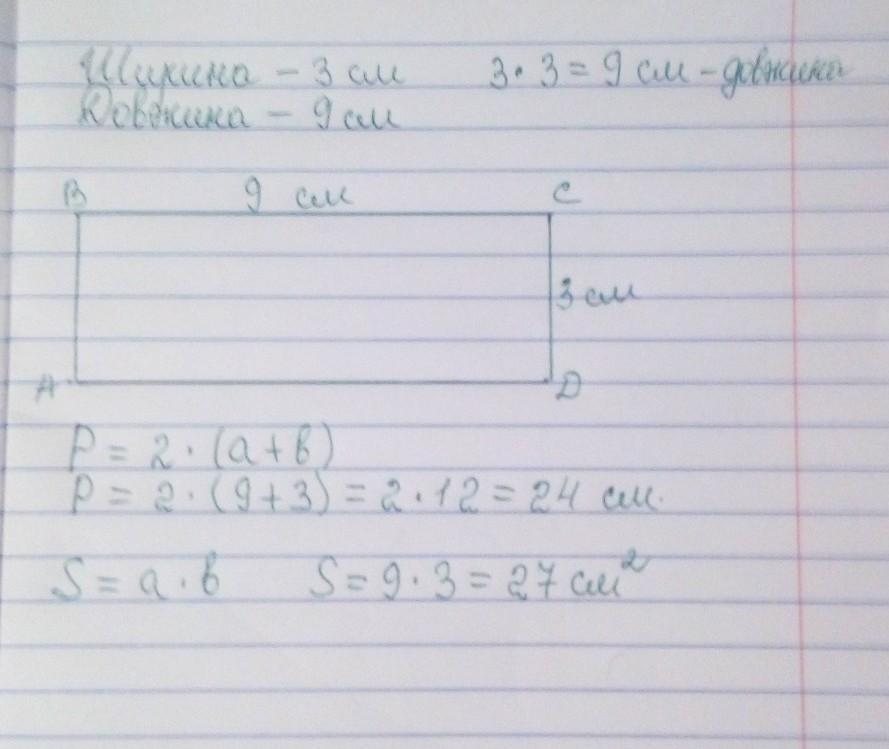 Ширина – 3 см 3·3=9 см – довжина
Довжина – 9 см
B 9 см C
3 см
A D
P = 2·(a+b)
P = 2·(9+3) = 2·12 = 24 см.
S = a·b S = 9·3 = 27 см²